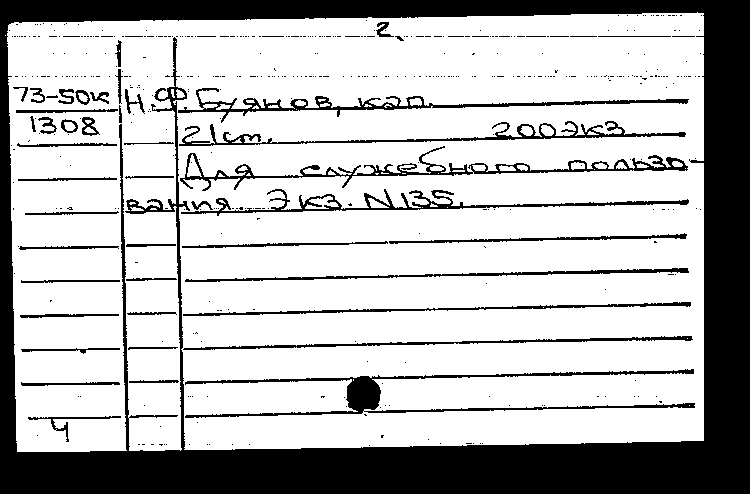 2.
73-50к Н.Ф. Буянов, кап.
1308 21cm. 200 экз
Для служебного пользо-
вания. Экз. N135.
Ч